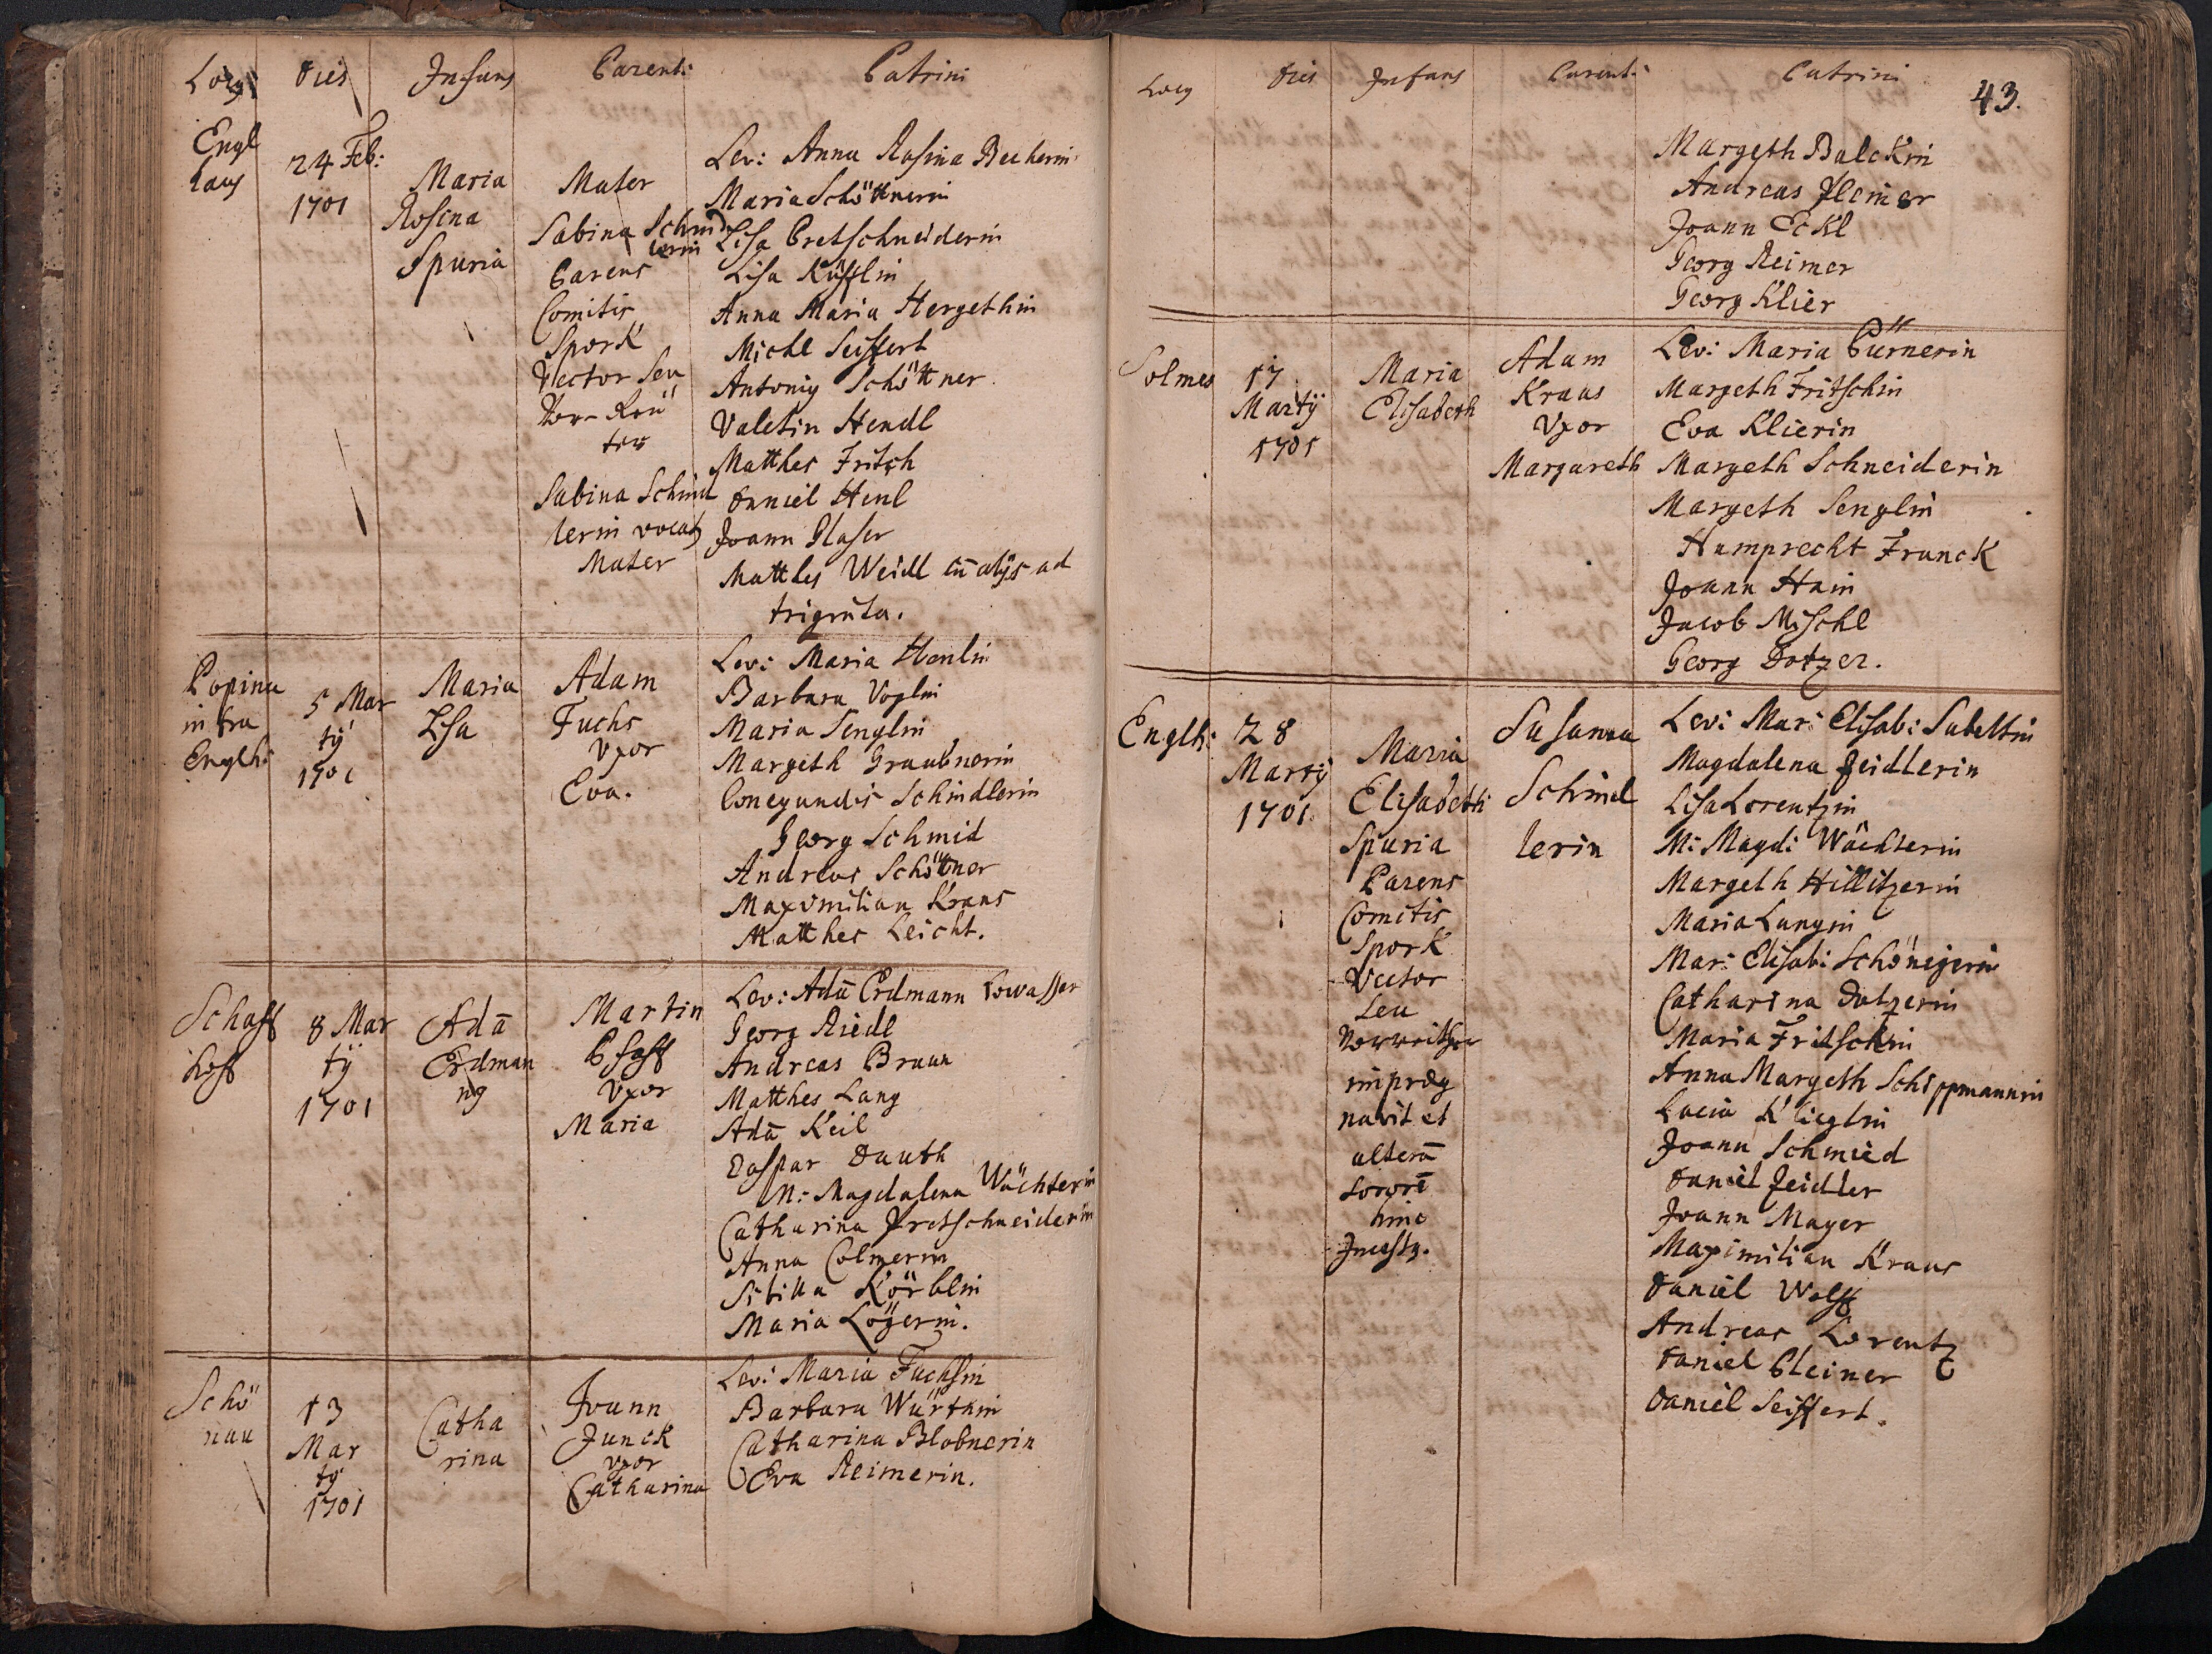 Locus Dies Infans Parent: Patrini
Engl
haus
24 Feb:
1701
Maria
Rosina
Spuria
Mater
Sabina Schind
lerin
Parens
Comitis
Spork
Vector seu
Vor-Reü
ter
Sabina Schind
lerin vocat
Mater
Lev: Anna Rosina Becherin
Maria Schöttnerin
Lisa Pretschneiderin
Lisa
Anna Maria Hergethin
Michl Seiffert
Antonig Schöttner
Valetin Hendl
Matthes Fritsch
Daniel Henl
Joann Glaser
Matthes Weidl cū alijs ad
triginta.
Popina
infra
Englh:
5 Mar
tÿ
1701
Maria
Lisa
Adam
Fuchs
Vxor
Eva.
Lev: Maria Henlin
Barbara Voglin
Maria Senglin
Margeth Graubnerin
Conegundis Schindlerin
Georg Schmid
Andreas Schöttner
Maximilian Kraus
Matthes Leicht.
Schaff
hoff
8 Mar
tÿ
1701
Adā
Erdman
ng
Martin
Vxor
Maria
Lev: Adā Erdmann
Georg Riedl
Andreas Braun
Matthes Lang
Adā Keil
Caspar Dauth
M: Magdalena Wächterin
Catharina Pretschneiderin
Anna Colmerin
Sibilla Körblin
Maria
Schö
nau
13
Mar
tÿ
1701
Catha
rina
Joann
Junck
vxor
Catharina
Lev: Maria Fuchsin
Barbara Würthin
Catharina Blobnerin
Eva Reimerin.
Locus Dies Infans Parent: Patrini
43.
Margeth Balckin
Andreas Pleiner
Joann Eckl
Georg Reimer
Georg Klier
Solmes
17
Martÿ
1701
Maria
Elisabeth
Adam
Kraus
Vxor
Margareth
Lev: Maria Pürnerin
Margeth Fritschin
Eva Klierin
Margeth Schneiderin
Margeth Senglin
Humprecht Franck
Joann Hain
Jacob Mischl
Georg Dotzer.
Englh:
28
Martÿ
1701
Maria
Elisabeth
Spuria
Parens
Comitis
Spork
Vector
seu
Vorreither
impræg
navit et
alterā
sororē
hinc
Incestg.
Susanna
Schind
lerin
Lev: Mar: Elisab: Sabethin
Magdalena Zeidlerin
Lisa Lorentzin
M: Magd: Wächterin
Margeth Hillitzerin
Maria Langin
Mar: Elisab: Schönigerin
Catharina Dotzerin
Maria Fritschin
Anna Margeth Schippmannin
Lucia Klieglin
Joann Schmied
Daniel Zeidler
Joann Mayer
Maximilian Kraus
Daniel Wolff
Andreas Lorentz
Daniel Pleiner
Daniel Seiffert.